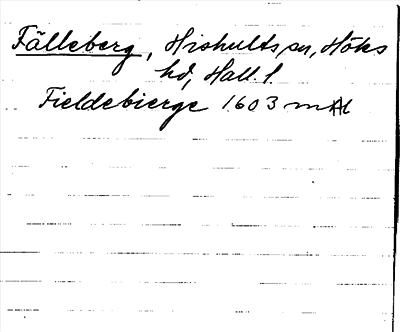 Fälleberg, Hishults sn, Höks
hd, Hall. l.
Fieldebierge 1603 mAl